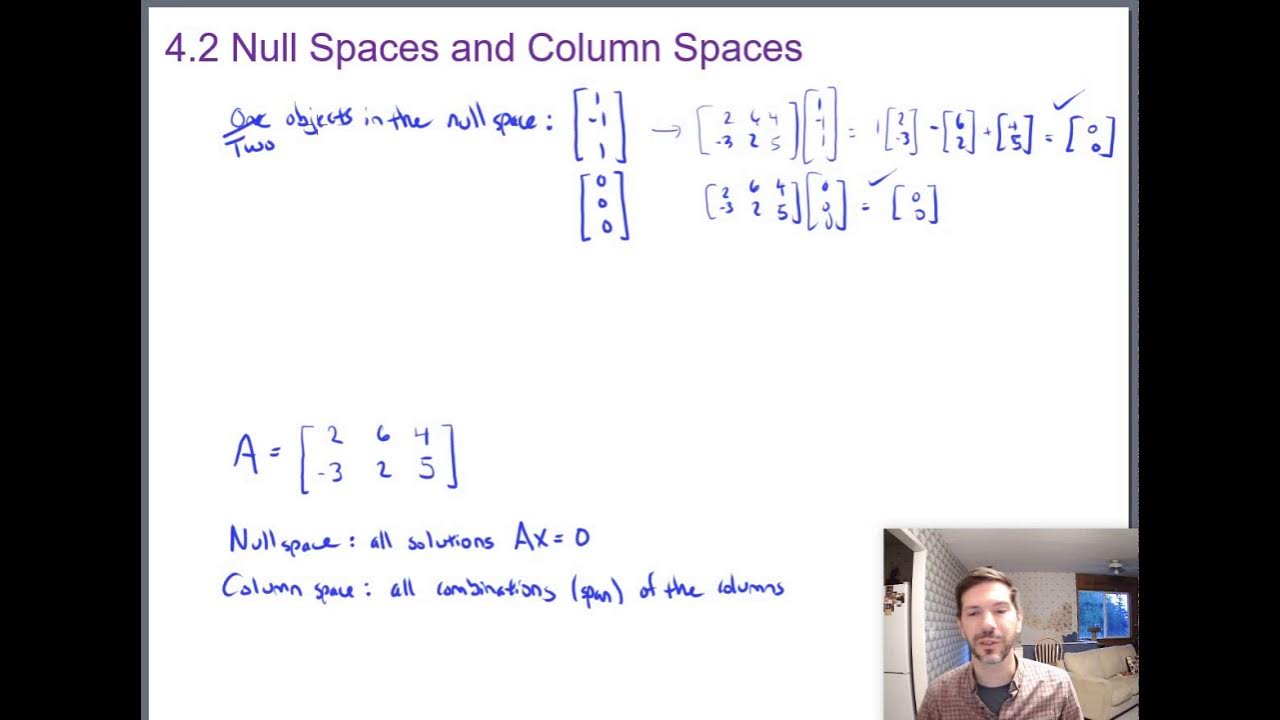 4.2 Null Spaces and Column Spaces
One objects in the null space: [1 -1 1] → [2 6 4 -3 2 5] [1 -1 1] = 1 [2 -3] - [6 2] + [4 5] = ✓ [0 0]
Two
[0 0 0] [2 6 4 -3 2 5] [0 0 0] = ✓ [0 0]
A = [2 6 4
-3 2 5]
Nullspace: all solutions Ax=0
Column space: all combinations (span) of the columns